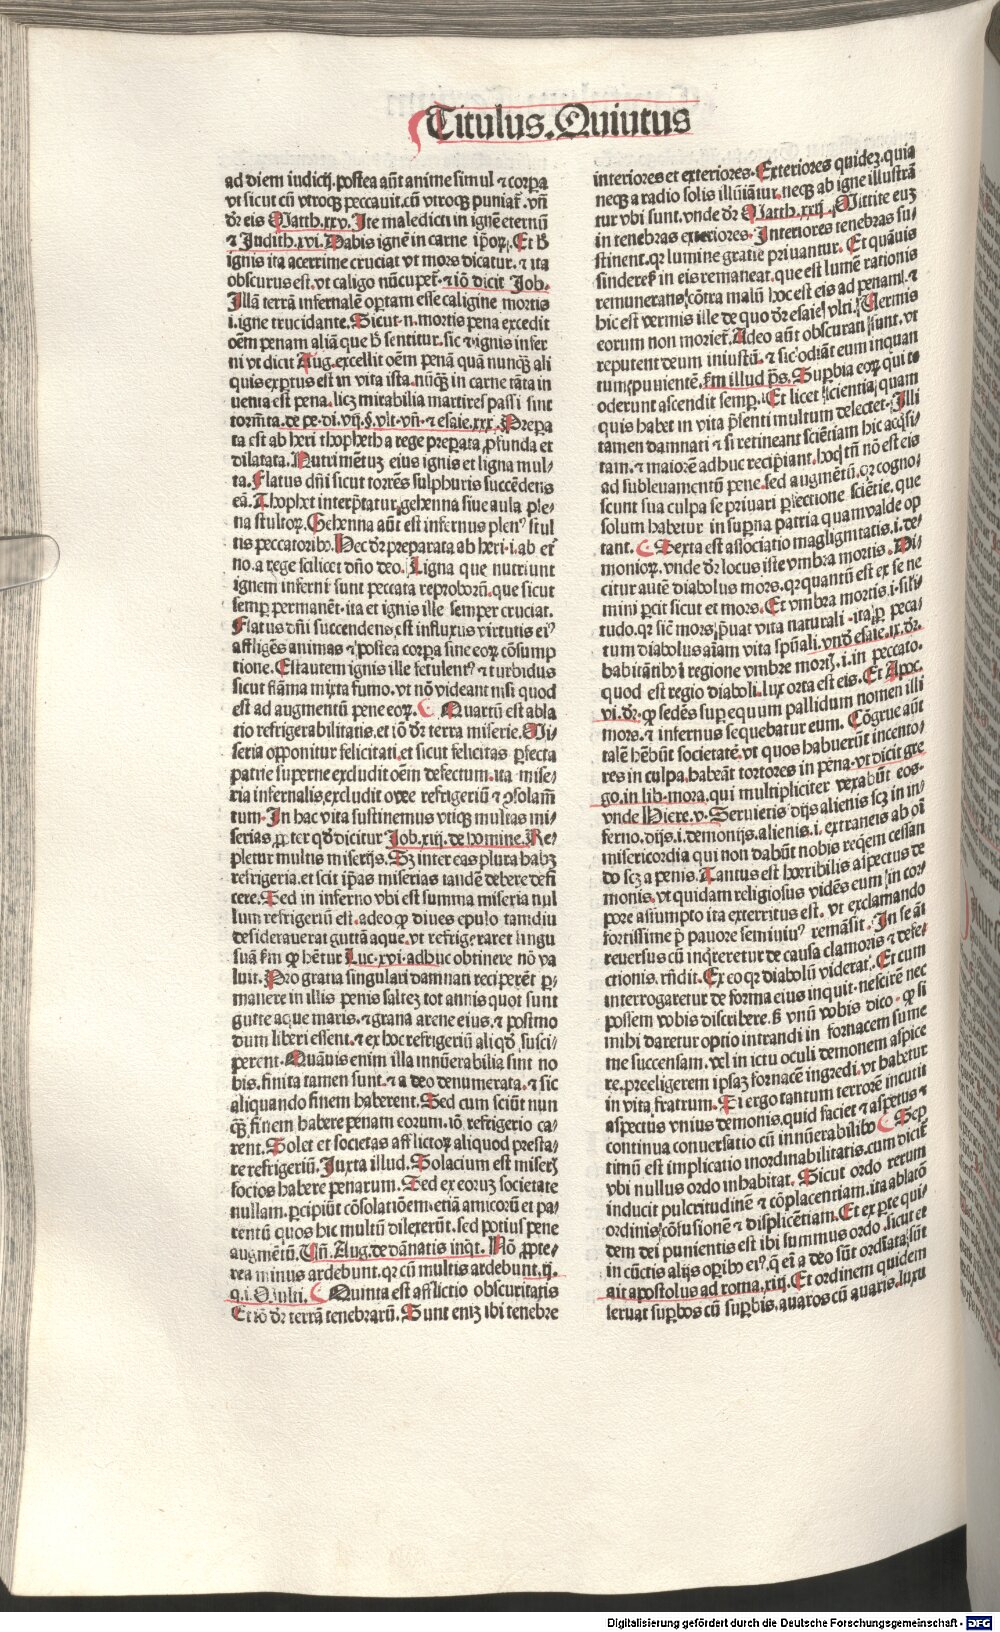 Titulus. Quintus
ad diem iudicij. postea aūt anime simul ⁊ corpa
vt sicut cū vtroqꝫ peccauit. cū vtroqꝫ puniat᷑. vn̄
dr̄ eis Matth. xxv. Ite maledicti in ignē eternū
⁊ Judith. xvi. Dabis ignē in carne ip̄oꝝ. Et h̄
ignis ita acerrime cruciat vt mors dicatur. ⁊ ita
obscurus est. vt caligo nūcupet᷑. ⁊ iō dicit Job.
Illā terrā infernalē optam esse caligine mortis
i. igne trucidante. Sicut .n. mortis pena excedit
oēm penam aliā que h̄ sentitur. sic ⁊ ignis infer
ni vt dicit Aug. excellit oēm penā quā nunqꝫ ali
quis exptus est in vita ista. nūqꝫ in carne tāta in
uenta est pena. licꝫ mirabilia martires passi sint
torm̄ta. de pe. di. vij. §. vlt. vn̄. ⁊ esaie. xxx. Prepa
ta est ab heri thopheth a rege preparata ꝓfunda et
dilatata. Nutrimētuꝫ eius ignis et ligna mul⸗
ta. Flatus dn̄i sicut torrēs sulphuris succēdens
eā. Thophet interp̄tatur gehenna siue aula ple⸗
na stultoꝝ. Gehenna aūt est infernus plen⁹ stul
tis peccatoribꝰ. Hec dr̄ preparata ab heri. i. ab et᷑
no. a rege scilicet dn̄o deo. Ligna que nutriunt
ignem inferni sunt peccata reproborū. que sicut
semp̱ permanēt. ita et ignis ille semper cruciat.
Flatus dn̄i succendens est influxus virtutis ei⁹
affligēs animas ⁊ postea corpa sine eoꝝ cōsump
tione. Est autem ignis ille fetulent⁹ ⁊ turbidus
sicut flāma mixta fumo. vt nō videant nisi quod
est ad augmentū pene eoꝝ. ¶ Quartū est abla
tio refrigerabilitatis. et iō dr̄ terra miserie. Mi⸗
seria opponitur felicitati. et sicut felicitas ꝑfecta
patrie superne excludit oēm defectum. ita mise⸗
ria infernalis excludit om̄e refrigeriū ⁊ ꝯsolam̄
tum. In hac vita sustinemus vtiqꝫ multas mi⸗
serias ꝓpter qd̓ dicitur Job. xiij. de homine. Re⸗
pletur multus miserijs. Sꝫ inter eas plura habꝫ
refrigeria. et scit ip̄as miserias tandē debere defi
cere. Sed in inferno vbi est summa miseria nul
lum refrigeriū est. adeo ꝙ diues epulo tamdiu
desiderauerat guttā aque. vt refrigeraret lingu
suā fm̄ ꝙ hr̄tur Luc. xvi. adhuc obtinere nō va
luit. Pro gratia singulari damnati reciperēt ꝑ⸗
manere in illis penis saltez tot annis quot sunt
gutte aque maris. ⁊ grana arene eius. ⁊ postmo
dum liberi essent. ⁊ ex hoc refrigeriū aliqd̓ susci⸗
perent. Quāuis enim illa innūerabilia sint no
bis. finita tamen sunt. ⁊ a deo denumerata. ⁊ sic
aliquando finem haberent. Sed cum sciūt nun
qꝫ finem habere penam eorum. iō refrigerio ca⸗
rent. Solet et societas afflictoꝝ aliquod presta⸗
re refrigeriū. Juxta illud. Solacium est miserꝭ
socios habere penarum. Sed ex eorum societate
nullam. ꝑcipiūt cōsolatiōem. etiā amicorū ei pa⸗
rentū quos hic multū dilexerūt. sed potius pene
augmētū. Vn̄. Aug. de dānatis inq̇t. Nō ꝓpte⸗
rea minus ardebunt. qr cū multis ardebunt. ij.
q. i. Multi. ¶ Quinta est afflictio obscuritatis
Et iō dr̄ terrā tenebrarū. Sunt eniꝫ ibi tenebre
interiores et exteriores. Exteriores quidez. quia
neqꝫ a radio solis illūiātur. neqꝫ ab igne illustrā
tur vbi sunt. vnde dr̄ Matth. xxij. Mittite euꝫ
in tenebras exteriores. Interiores tenebras su⸗
stinent. qr lumine gratie priuantur. Et quāuis
sinderes̄ in eis remaneat. que est lumē rationis
remurmurans cōtra malū hoc est eis ad penam. ⁊
hic est vermis ille de quo dr̄ esaie vlti. Vermis
eorum non moriet᷑. Adeo aūt obscurati sunt. vt
reputent deum iniustū. ⁊ sic odiāt eum inquan
tum punientē. fm̄ illud ps̄. Supbia eoꝝ qui te
oderunt ascendit semp̱. Et licet scientia quam
quis habet in vita p̄senti multum delectet. Illi
tamen damnati ⁊ si retineant sciētiam hic acq̇si⸗
tam. ⁊ maiorē adhuc recipiant. hoc tn̄ nō est eis
ad subleuamentū pene. sed augmētū. qr cogno⸗
scunt sua culpa se priuari ꝑfectione sciētie. que
solum habetur in supna patria quam valde op
tant. ¶ Sexta est associatio maglignitatis. i. de⸗
monioꝝ. vnde dr̄ locus iste vmbra mortis. Di⸗
citur autē diabolus mors. qr quantū est ex se ne
mini ꝑcit sicut et mors. Et vmbra mortis. i. sili⸗
tudo. qr sic̄ mors p̄uat vita naturali. ita ꝑ pecca⸗
tum diabolus aīam vita spūali. vnd̓ esaie. ix. dr̄.
habitātibꝰ i regione vmbre mortꝭ. i. in peccato.
quod est regio diaboli. lux orta est eis. Et Apoc.
vi. dr̄. ꝙ sedēs sup equum pallidum nomen illi
mors. ⁊ infernus sequebatur eum. Cōgrue aūt
talē hēbūt societatē. vt quos habuerūt incento⸗
res in culpa. habeāt tortores in pena. vt dicit gre
go. in lib. mora. qui multipliciter vexabūt eos.
vnde Hiere. v. Seruietis dijs alienis scꝫ in in⸗
ferno. dijs. i. demonijs. alienis. i. extraneis ab oī
misericordia qui non dabūt nobis req̇em cessan
do scꝫ a penis. Tantus est horribilis aspectus de
monis. vt quidam religiosus vidēs eum in cor
pore assumpto ita exterritus est. vt exclamando
fortissime p̄ pauore semiuiu⁹ remāsit. In se aūt
reuersus cū inq̇reretur de causa clamoris ⁊ defe⸗
ctionis. rn̄dit. Ex eo qr diabolū viderat. Et cum
interrogaretur de forma eius inquit. nescirē nec
possem vobis discribere. s̄ vnū vobis dico. ꝙ si
mihi daretur optio intrandi in fornacem sume
me succensam. vel in ictu oculi demonem aspice
re. preeligerem ipsaꝫ fornacē ingredi. vt habetur
in vita fratrum. Si ergo tantum terrorē incutit
aspectus vnius demonis. quid faciet ⁊ aspectus ⁊
continua conuersatio cū innūerabilibꝰ ¶ Sep
timū est implicatio inordinabilitatis. cum dicit᷑
vbi nullus ordo inhabitat. Sicut ordo rerum
inducit pulcritudinē ⁊ cōplacentiam. ita ablatō
ordinis cōfusionē ⁊ displicētiam. Et ex ꝑte qui⸗
dem dei punientis est ibi summus ordo. sicut et
in cūctis alijs opibꝰ ei⁹. q̄ ei a deo sūt ordiata sūt
ait apostolus ad roma. xiij. Et ordinem quidem
seruat supbos cū supbis. auaros cū auaris. luxu
Digitalisierung gefördert durch die Deutsche Forschungsgemeinschaft - DFG